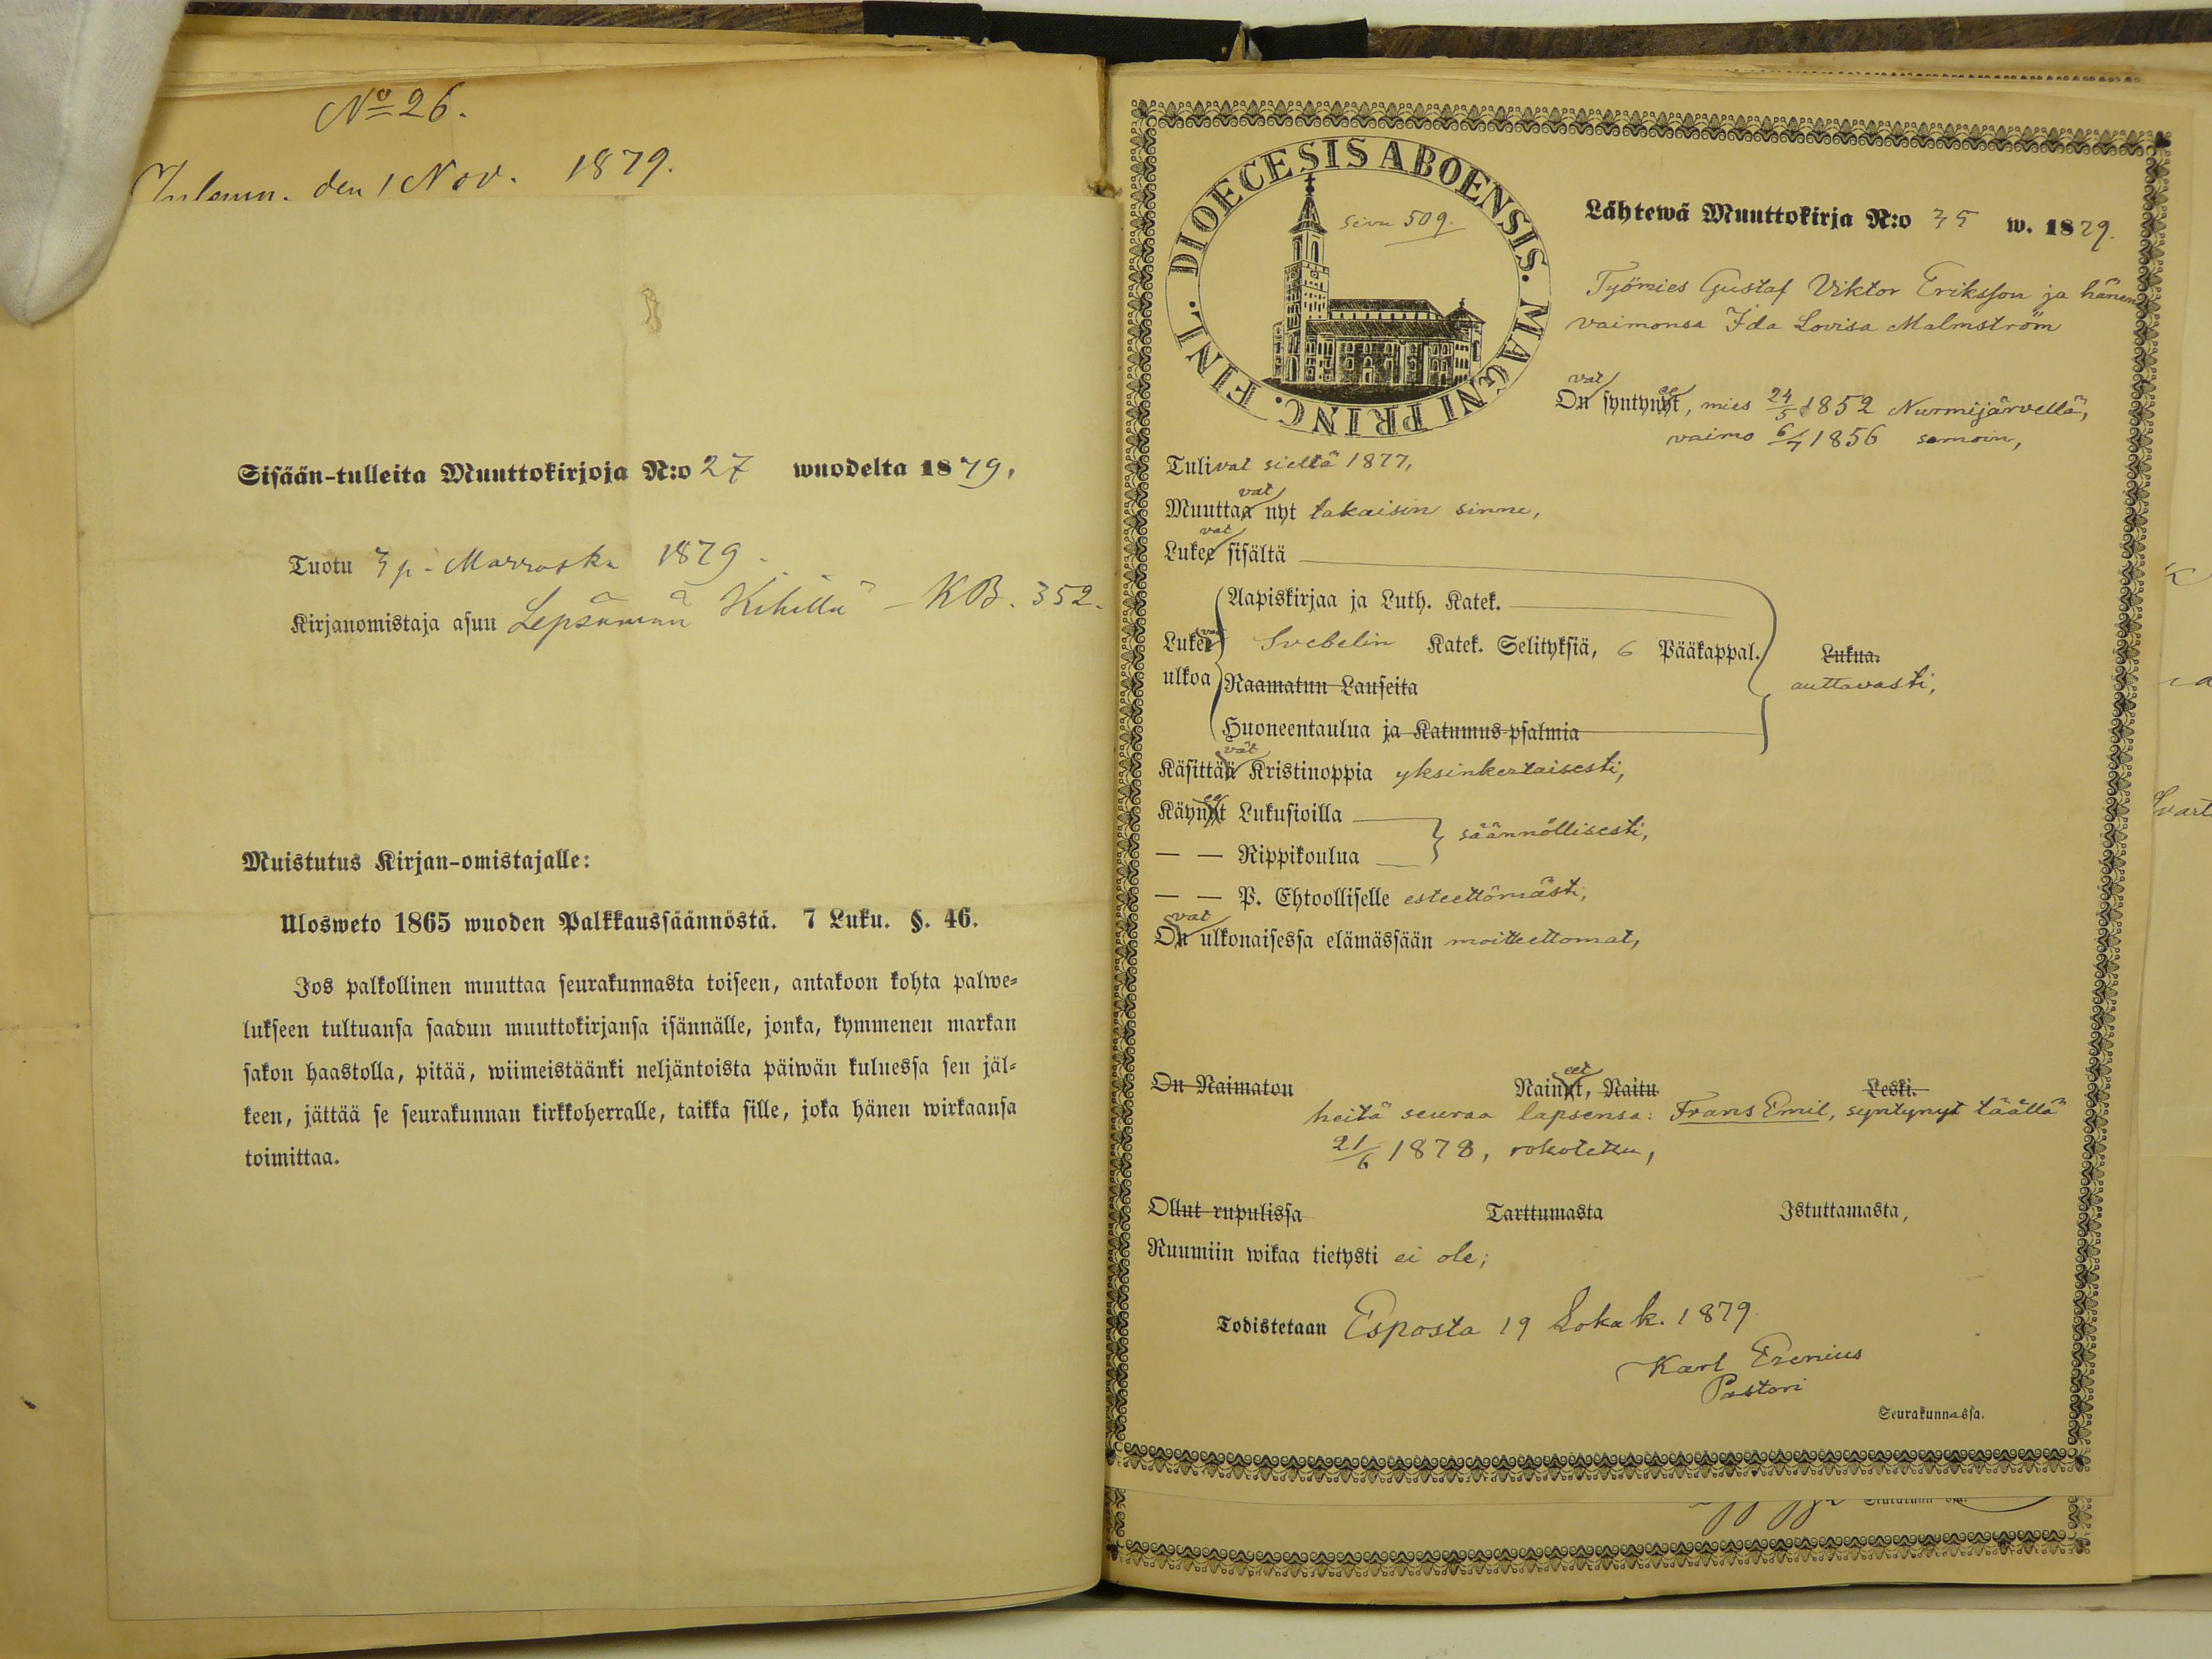 No 26.
den 1 Nov. 1879.
Sisään-tulleita Muuttokirjoja N:o 27 wuodelta 1879,
Tuotu 3 p. Marrask. 1879.
Kirjanomistaja asuu Lepsämän Kihillä – KB. 352.
Muistutus Kirjan-omistajalle:
Ulosweto 1865 wuoden Palkkaussäännöstä. 7 Luku. §. 46.
Jos palkollinen muuttaa seurakunnasta toiseen, antakoon kohta palwe-
lukseen tultuansa saadun muuttokirjansa isännälle, jonka, kymmenen markan
sakon haastolla, pitää, wiimeistäänki neljäntoista päiwän kuluessa sen jäl-
keen, jättää se seurakunnan kirkkoherralle, taikka sille, joka hänen wirkaansa
toimittaa.
DIOECESIS ABOENSIS. MAGNI PRINC. FINL.
Sivu 509.
Lähtewä Muuttokirja N:o 35 w. 1879.
Työmies Gustaf Viktor Eriksson ja hänen
vaimonsa Ida Lovisa Malmström
Ovat syntyneet, mies 24/5 1852 Nurmijärvellä,
vaimo 6/7 1856 samoin,
Tulivat sieltä 1877,
Muuttavat nyt takaisin sinne,
Lukevat sisältä
Aapiskirjaa ja Luth. Katek.
Lukevat Svebelin Katek. Selityksiä, 6 Pääkappal. Lukua.
ulkoa Raamatun Lauseita auttavasti,
Huoneentaulua ja Katumus-psalmia
Käsittävät Kristinoppia yksinkertaisesti,
Käyneet Lukusioilla
säännöllisesti,
— — Rippikoulua
— — P. Ehtoolliselle esteettömästi,
Ovat ulkonaisessa elämässään moitteettomat,
On Naimaton Naineet, Naitu Leski.
heitä seuraa lapsensa: Frans Emil, syntynyt täällä
21/6 1878, rokotettu,
Ollut rupulissa Tarttumasta Istuttamasta,
Ruumiin wikaa tietysti ei ole;
Todistetaan Esposta 19 Lokak. 1879.
Karl Erenius
Pastori
Seurakunnassa.